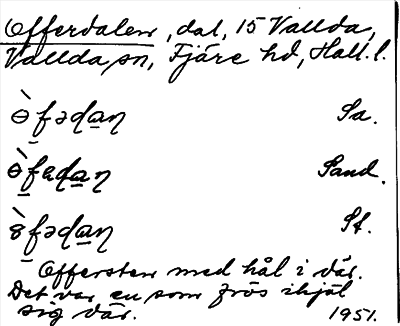 Offerdalen, dal, 15 Vallda,
Vallda sn, Fjäre hd, Hall. l.
ɵ̀fədaŋ Sa.
ɵ̀fɐdaŋ Sand.
fədaŋ St.
Offersten med hål i där.
Det var en som frös ihjäl
sig där. 1951.